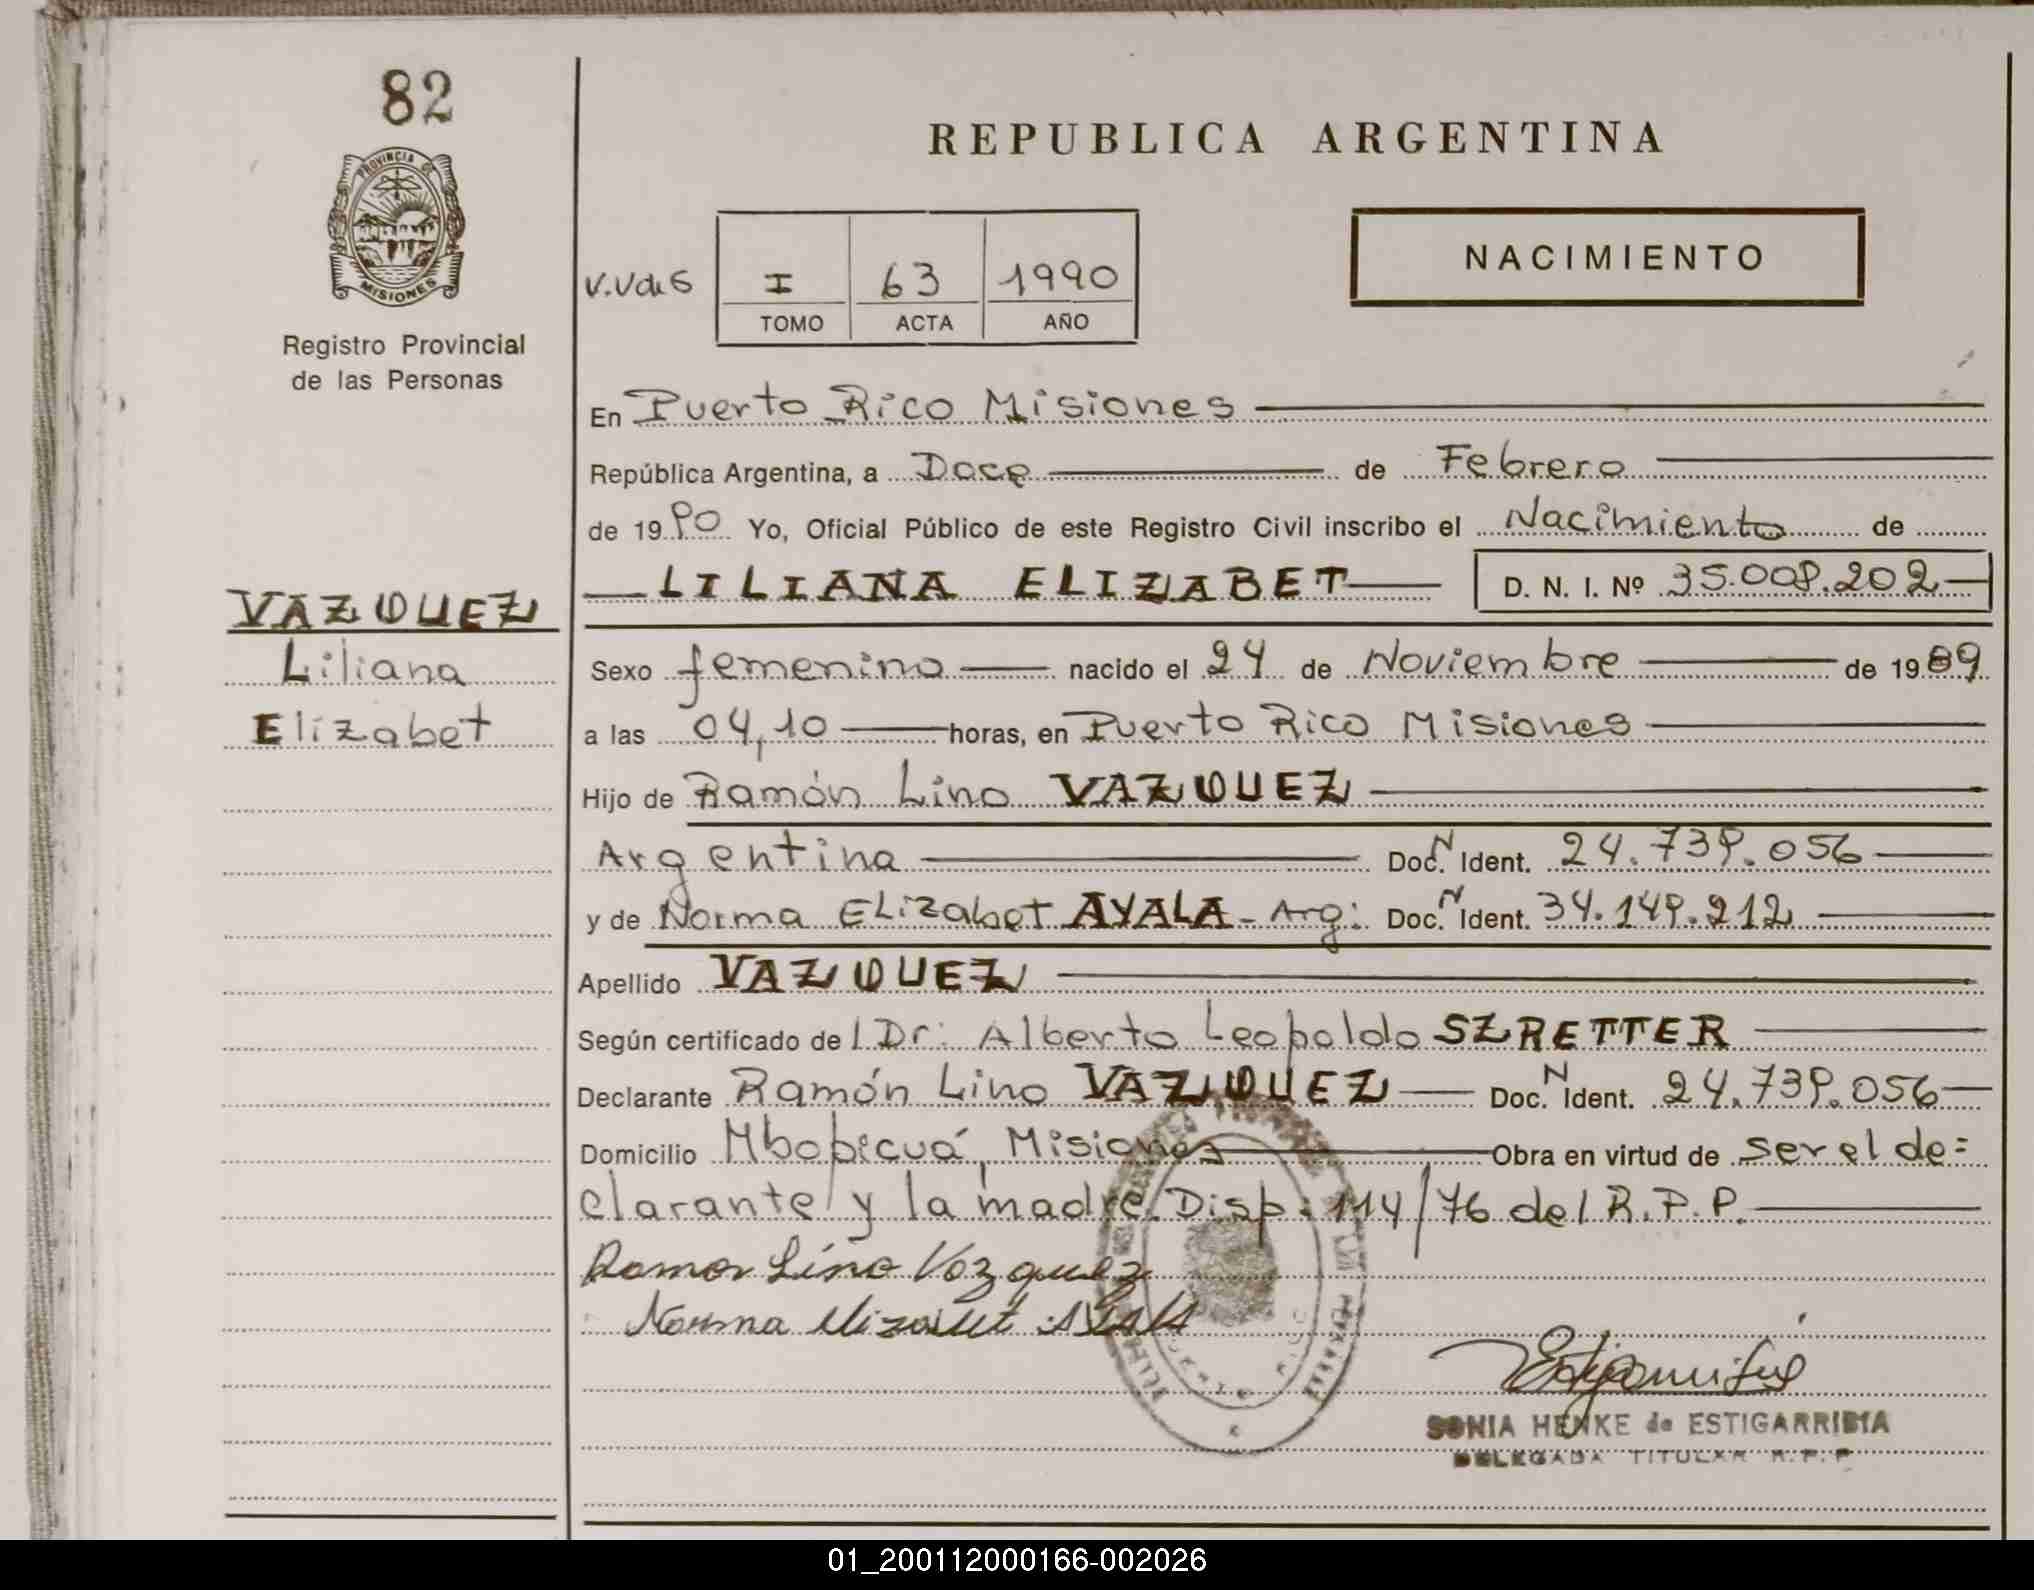 82
REPUBLICA ARGENTINA
PROVINCIA DE
MISIONES
Registro Provincial
de las Personas
NACIMIENTO
V.V de G
I 63 1990
TOMO ACTA AÑO
En Puerto Rico Misiones
República Argentina, a Doce de Febrero
de 1990 Yo, Oficial Público de este Registro Civil inscribo el Nacimiento de
LILIANA ELIZABET D. N. I. Nº 35.008.202
VAZQUEZ
Liliana
Elizabet
Sexo femenino nacido el 24 de Noviembre de 1989
a las 04,10 horas, en Puerto Rico Misiones
Hijo de Ramón Lino VAZQUEZ
Argentina Doc. N Ident. 24.739.056
y de Norma Elizabet AYALA - Arg: Doc. N Ident. 34.149.212
Apellido VAZQUEZ
Según certificado de l Dr: Alberto Leopoldo SZRETTER
Declarante Ramón Lino VAZQUEZ Doc. N Ident. 24.739.056
Domicilio Mbopicuá, Misiones Obra en virtud de ser el de=
clarante y la madre. Disp: 114/76 del R.P.P.
Ramon Lino Vazquez
Norma Elizabet Ayala
SONIA HENKE de ESTIGARRIBIA
DELEGADA TITULAR R.P.P
01_200112000166-002026